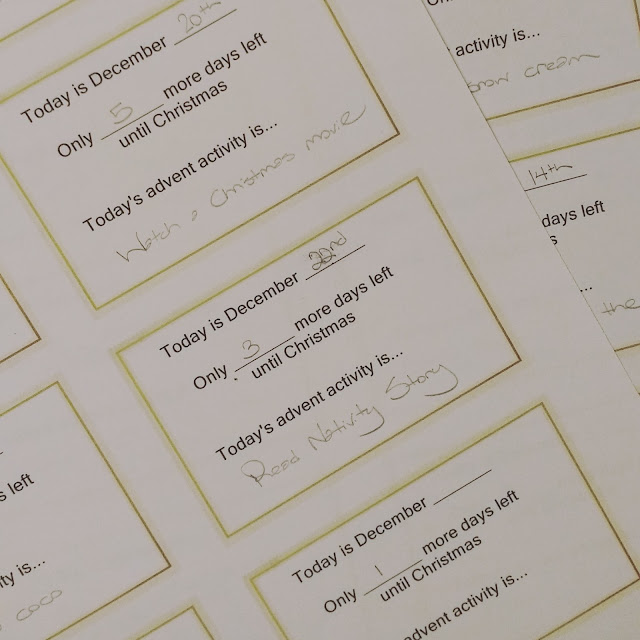 Today is December 20th
Only 5 more days left
until Christmas
Today's advent activity is...
Watch a Christmas movie
Today is December 22nd
Only 3 more days left
until Christmas
Today's advent activity is...
Read Nativity Story
Today is December
Only 1 more days left
until Christmas
advent activity is...
activity is...
cream
14th
days left
s
...
the
s left
ity is...
coco